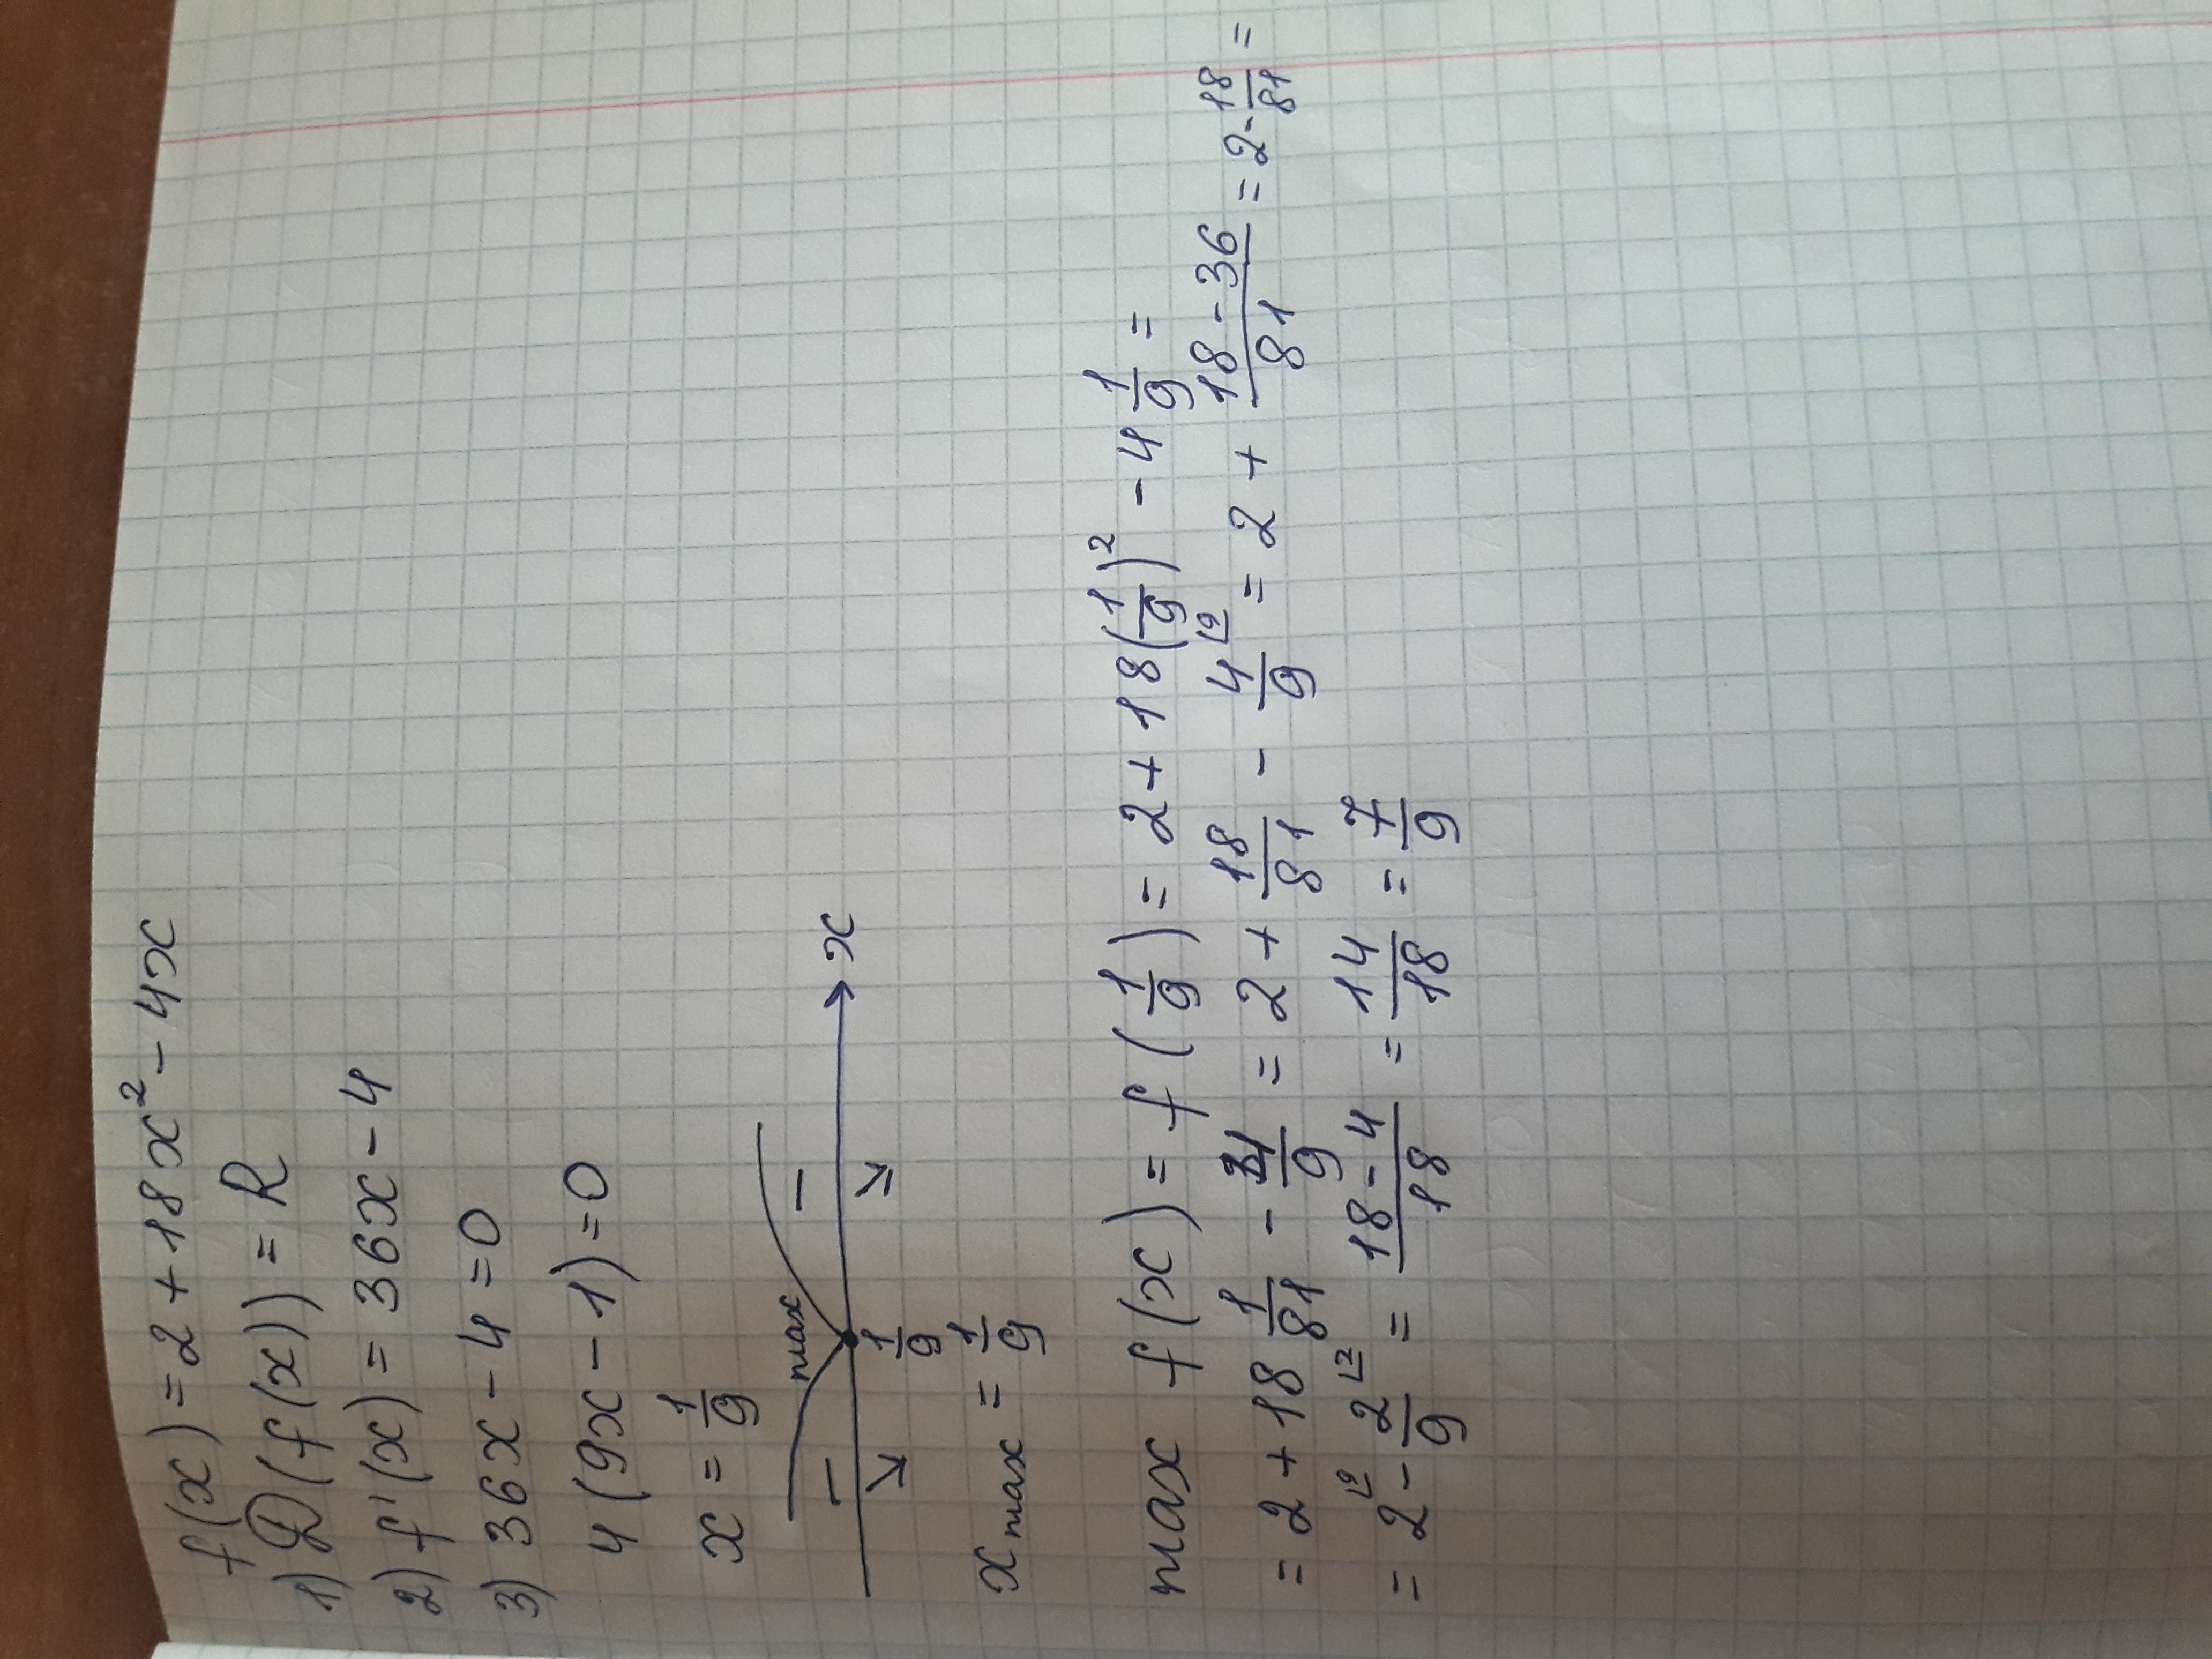 f(x) = 2 + 18x² - 4x
1) D(f(x)) = R
2) f'(x) = 36x - 4
3) 36x - 4 = 0
4(9x - 1) = 0
x = 1/9
max
- -
x
1/9
x max = 1/9
max f(x) = f(1/9) = 2 + 18(1/9)² - 4 1/9 =
= 2 + 18 1/81 - 4/9 = 2 + 18/81 - 4/9 ⌊9 = 2 + (18 - 36)/81 = 2 - 18/81 =
= 2 ⌊9 - 2/9 ⌊2 = (18 - 4)/18 = 14/18 = 7/9